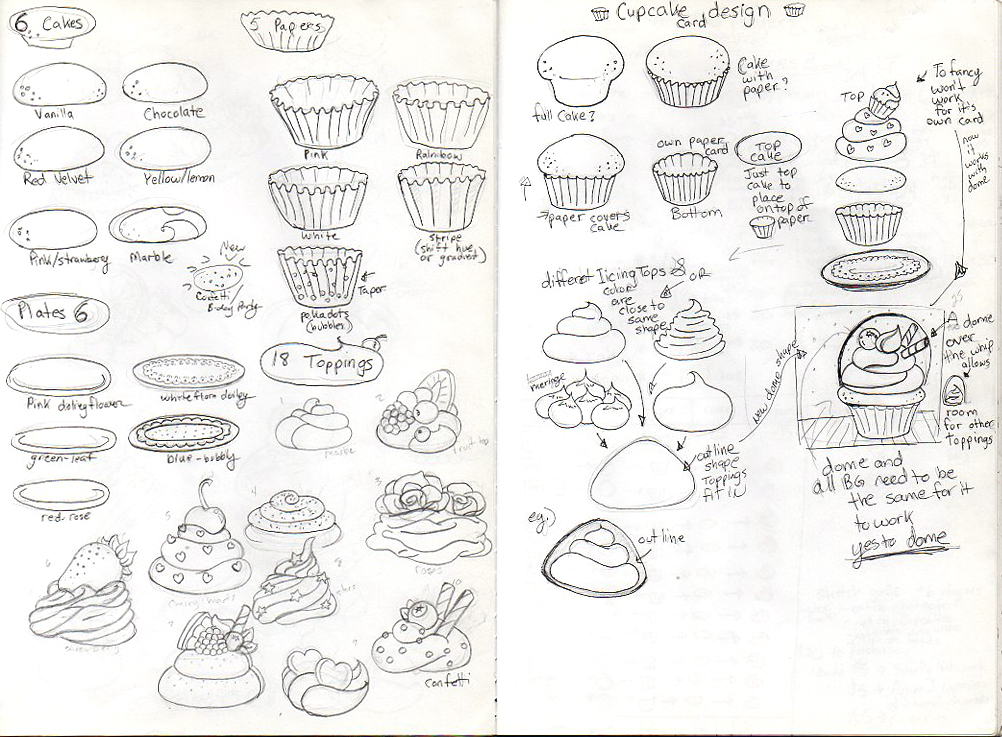 6 Cakes
5 Papers
Vanilla
Chocolate
Red Velvet
Yellow/lemon
Pink/strawberry
Marble
New
Confetti
B-day Party
Pink
Rainbow
White
stripe
(shift hue
or gradient)
Taper
polkadots
(bubbles)
Plates 6
Pink doiley flower
green-leaf
blue-bubbly
red-rose
18 Toppings
1
2
fruit top
3
roses
4
5
6
strawberry
7
8
stars
9
10
confetti
Cupcake design
card
full Cake?
Cake
with
paper?
paper covers
cake
own paper
card
Bottom
TOP
Cake
Just top
cake to
place
on top of
paper
TOP
To fancy
won't
work
for it's
own card
now
it
works
with
dome
different Icing Tops
OR
colors
are
close to
same
shape
meringe
or
outline
shape
Toppings
fit in
eg.)
outline
New dome shape
A
dome
over
the whip
allows
room
for other
toppings
dome and
all BG need to be
the same for it
to work
yes to dome